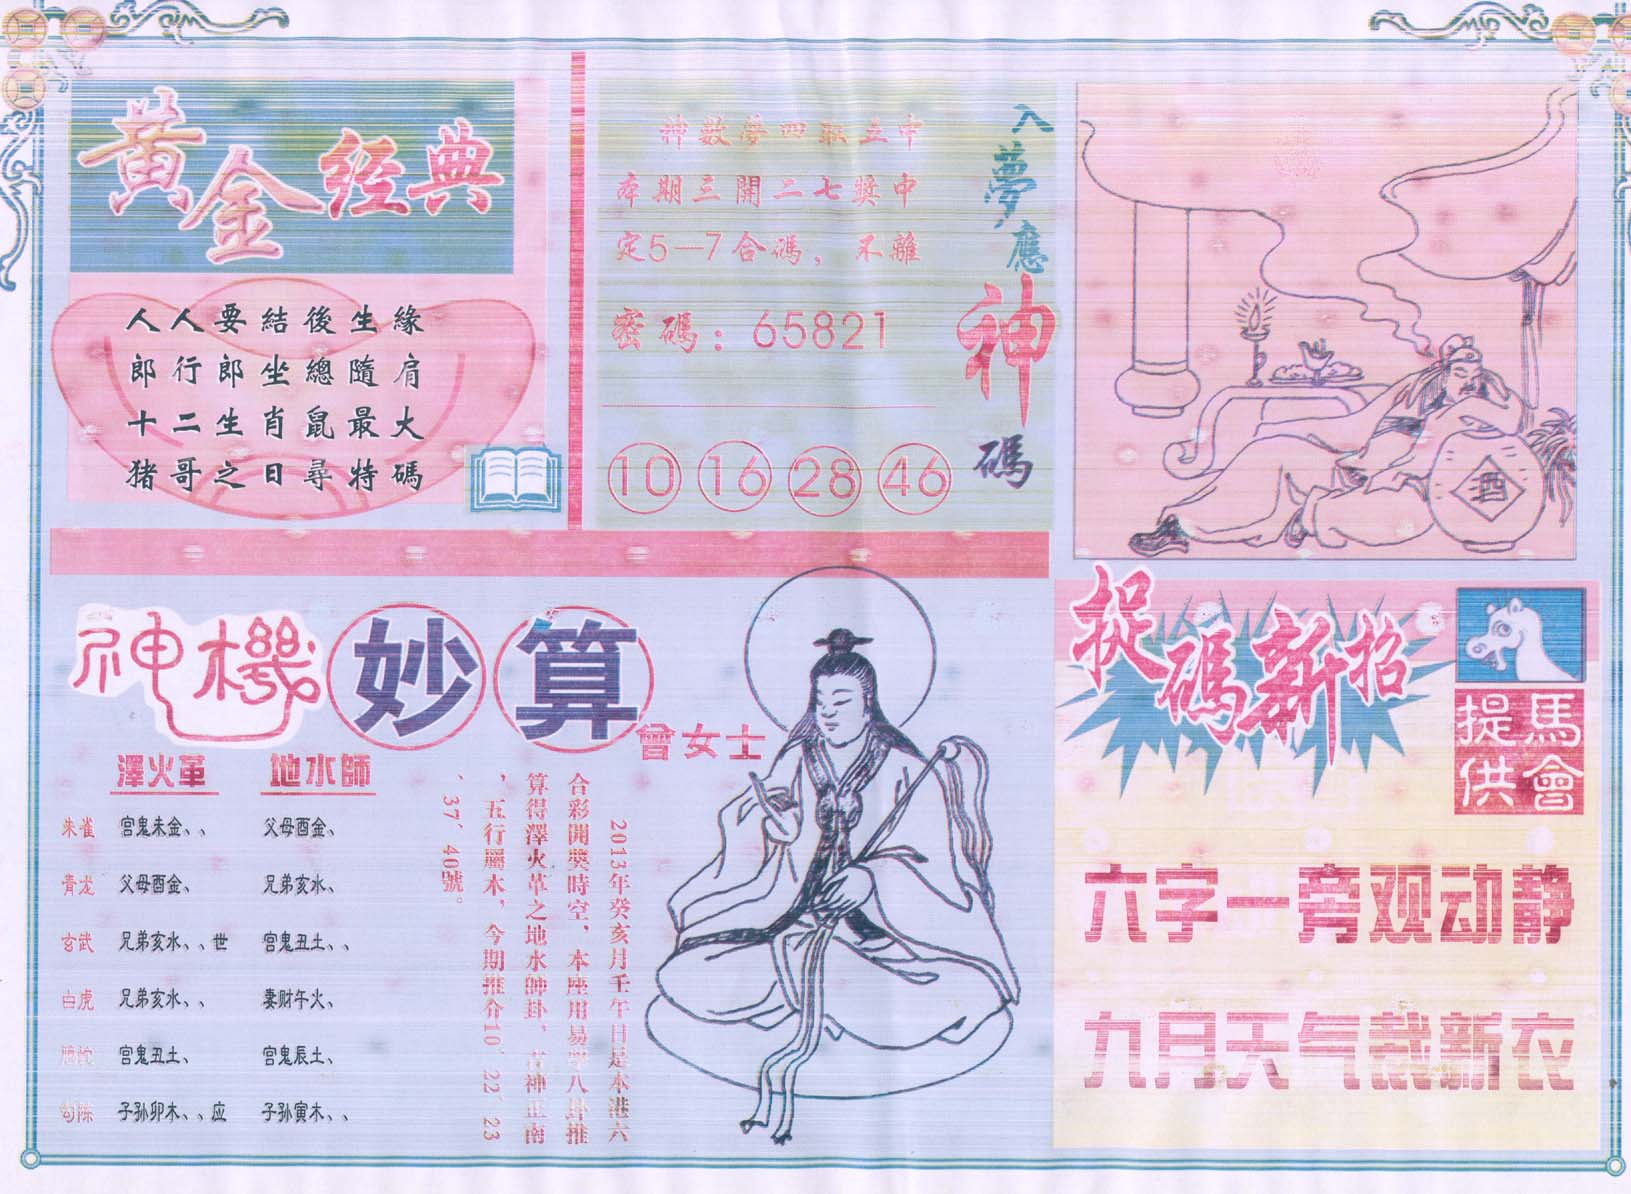 黃金经典
人人要結後生緣
郎行郎坐總隨肩
十二生肖鼠最大
猪哥之日尋特碼
入夢應神碼
神數夢四取五中
本期三開二七獎中
定5—7合碼，不離
密碼：65821
10 16 28 46
酒
神機妙算
曾女士
澤火革 地水師
朱雀 官鬼未金、、 父母酉金、
青龙 父母酉金、 兄弟亥水、
玄武 兄弟亥水、、世 官鬼丑土、、
白虎 兄弟亥水、、 妻财午火、
官鬼丑土、 官鬼辰土、
勾陈 子孙卯木、、应 子孙寅木、、
2013年癸亥月壬午日是本港六
合彩開獎時空，本座用易學八卦推
算得澤火革之地水師卦，吉神正南
，五行屬木，今期推介10、22、23
、37、40號。
捉碼新招
馬會提供
六字一旁观动静
九月天气裁新衣